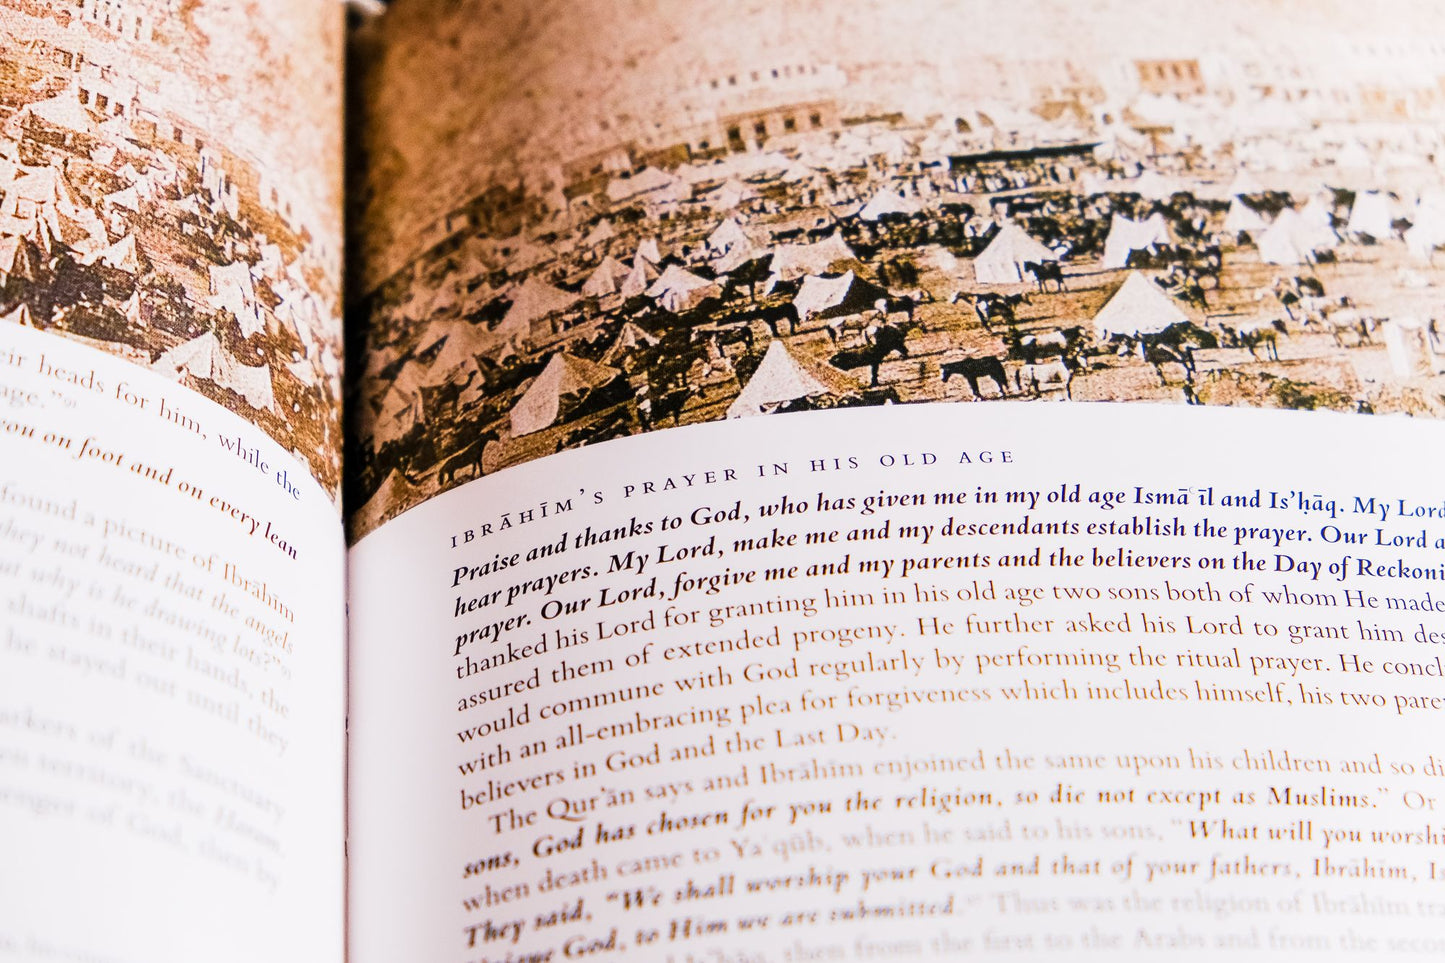 eir heads for him, while the
age."
you on foot and on every lean
found a picture of Ibrāhīm
they not heard that the angels
but why is he drawing lots?"
shafts in their hands, the
he stayed out until they
arkers of the Sanctuary
territory, the Haram,
enger of God, then by
IBRĀHĪM'S PRAYER IN HIS OLD AGE
Praise and thanks to God, who has given me in my old age Ismāʿīl and Is'ḥāq. My Lord
hear prayers. My Lord, make me and my descendants establish the prayer. Our Lord a
prayer. Our Lord, forgive me and my parents and the believers on the Day of Reckoni
thanked his Lord for granting him in his old age two sons both of whom He made
assured them of extended progeny. He further asked his Lord to grant him des
would commune with God regularly by performing the ritual prayer. He concl
with an all-embracing plea for forgiveness which includes himself, his two pare
believers in God and the Last Day.
The Qur'ān says and Ibrāhīm enjoined the same upon his children and so di
sons, God has chosen for you the religion, so die not except as Muslims." Or
when death came to Yaʿqūb, when he said to his sons, "What will you worshi
They said, "We shall worship your God and that of your fathers, Ibrāhīm, Is
God, to Him we are submitted." Thus was the religion of Ibrāhīm tra
then from the first to the Arabs and from the secon